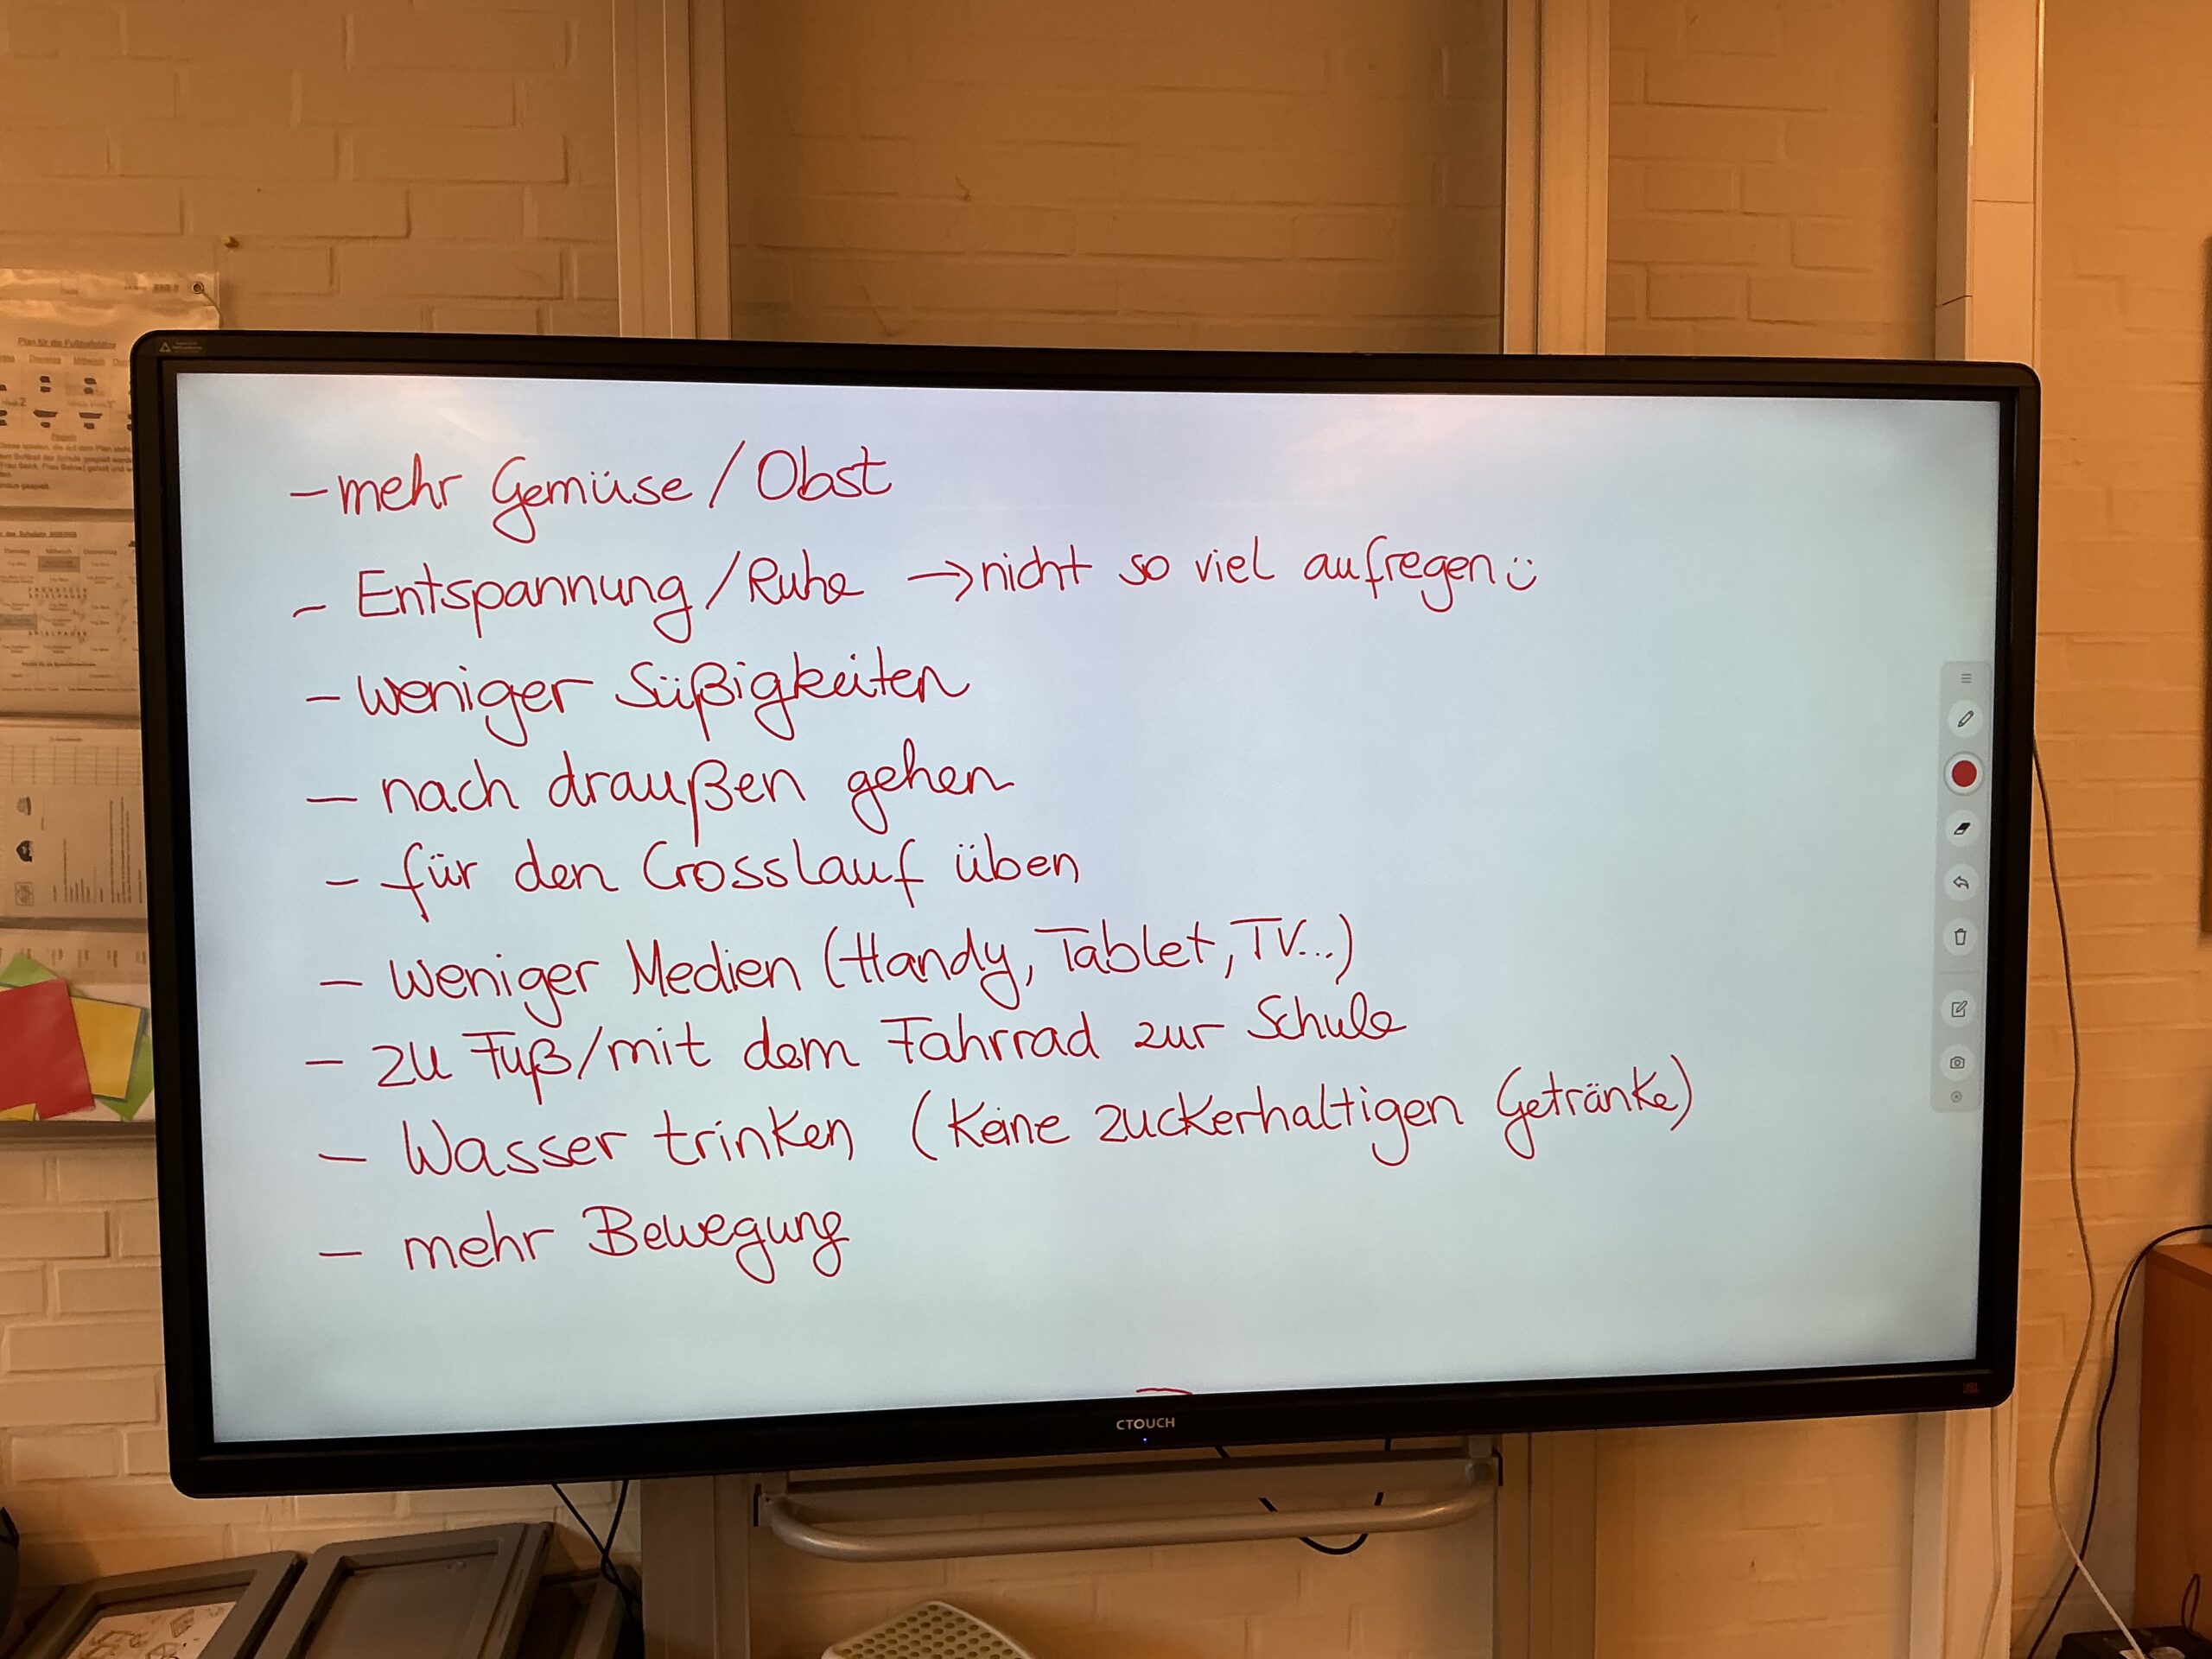 Plan für die Fußballplätze
Dienstag Mittwoch
- mehr Gemüse / Obst
- Entspannung / Ruhe → nicht so viel aufregen ☺
- weniger Süßigkeiten
- nach draußen gehen
- für den Crosslauf üben
- weniger Medien (Handy, Tablet, TV...)
- zu Fuß/mit dem Fahrrad zur Schule
- Wasser trinken (keine zuckerhaltigen Getränke)
- mehr Bewegung
CTOUCH
JBL